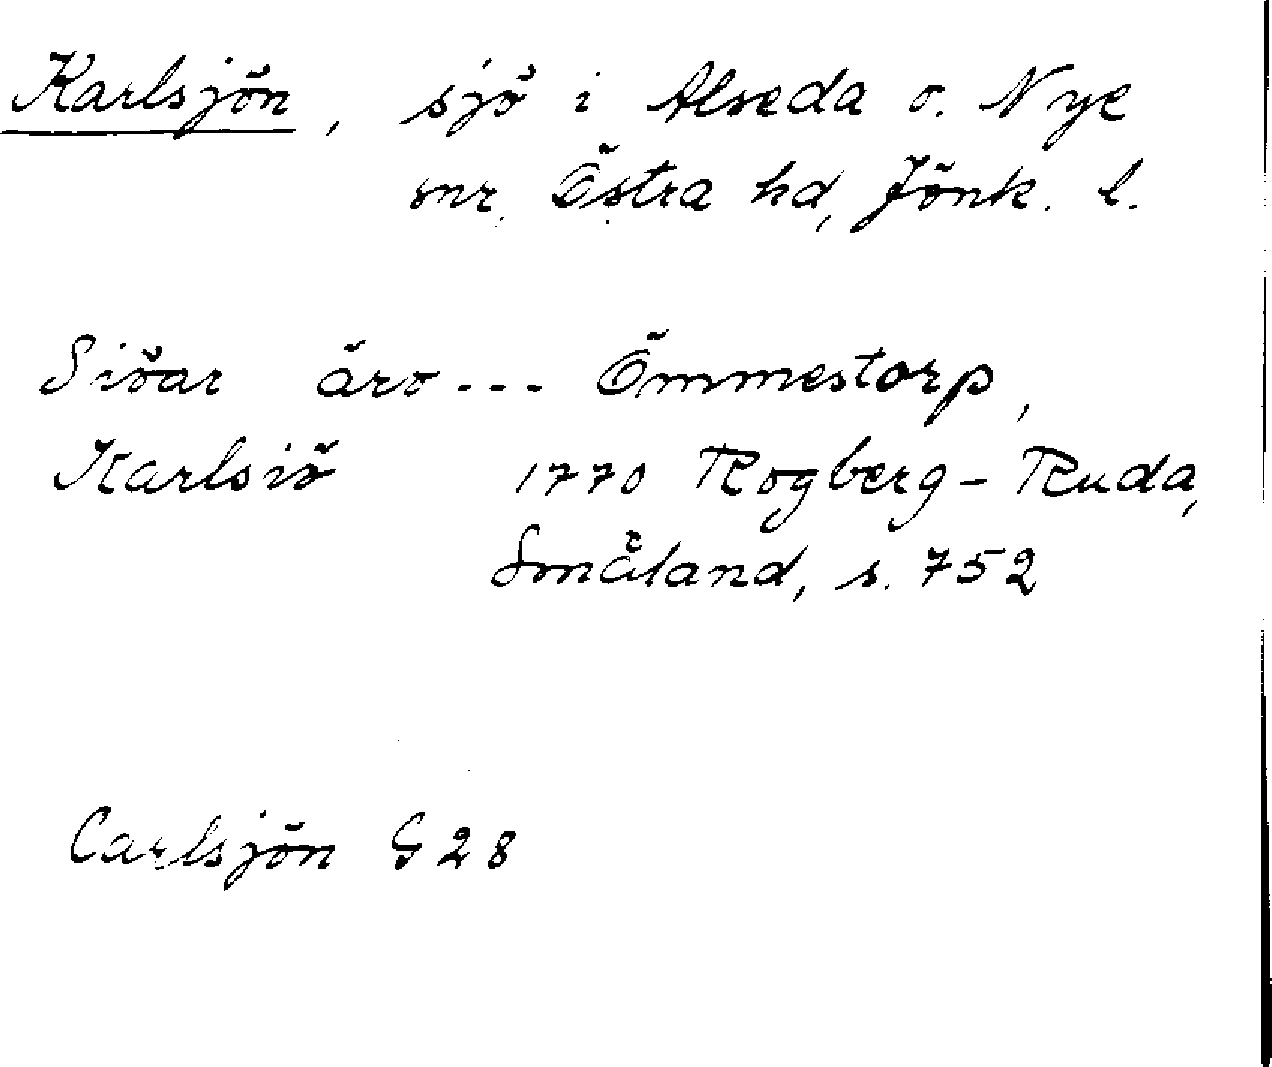 Karlsjön, sjö i Alseda o. Nye
snr, Östra hd, Jönk. l.
Siöar äro --- Ömmestorp,
Karlsiö 1770 Rogberg-Ruda,
Småland, s. 752
Carlsjön G 28